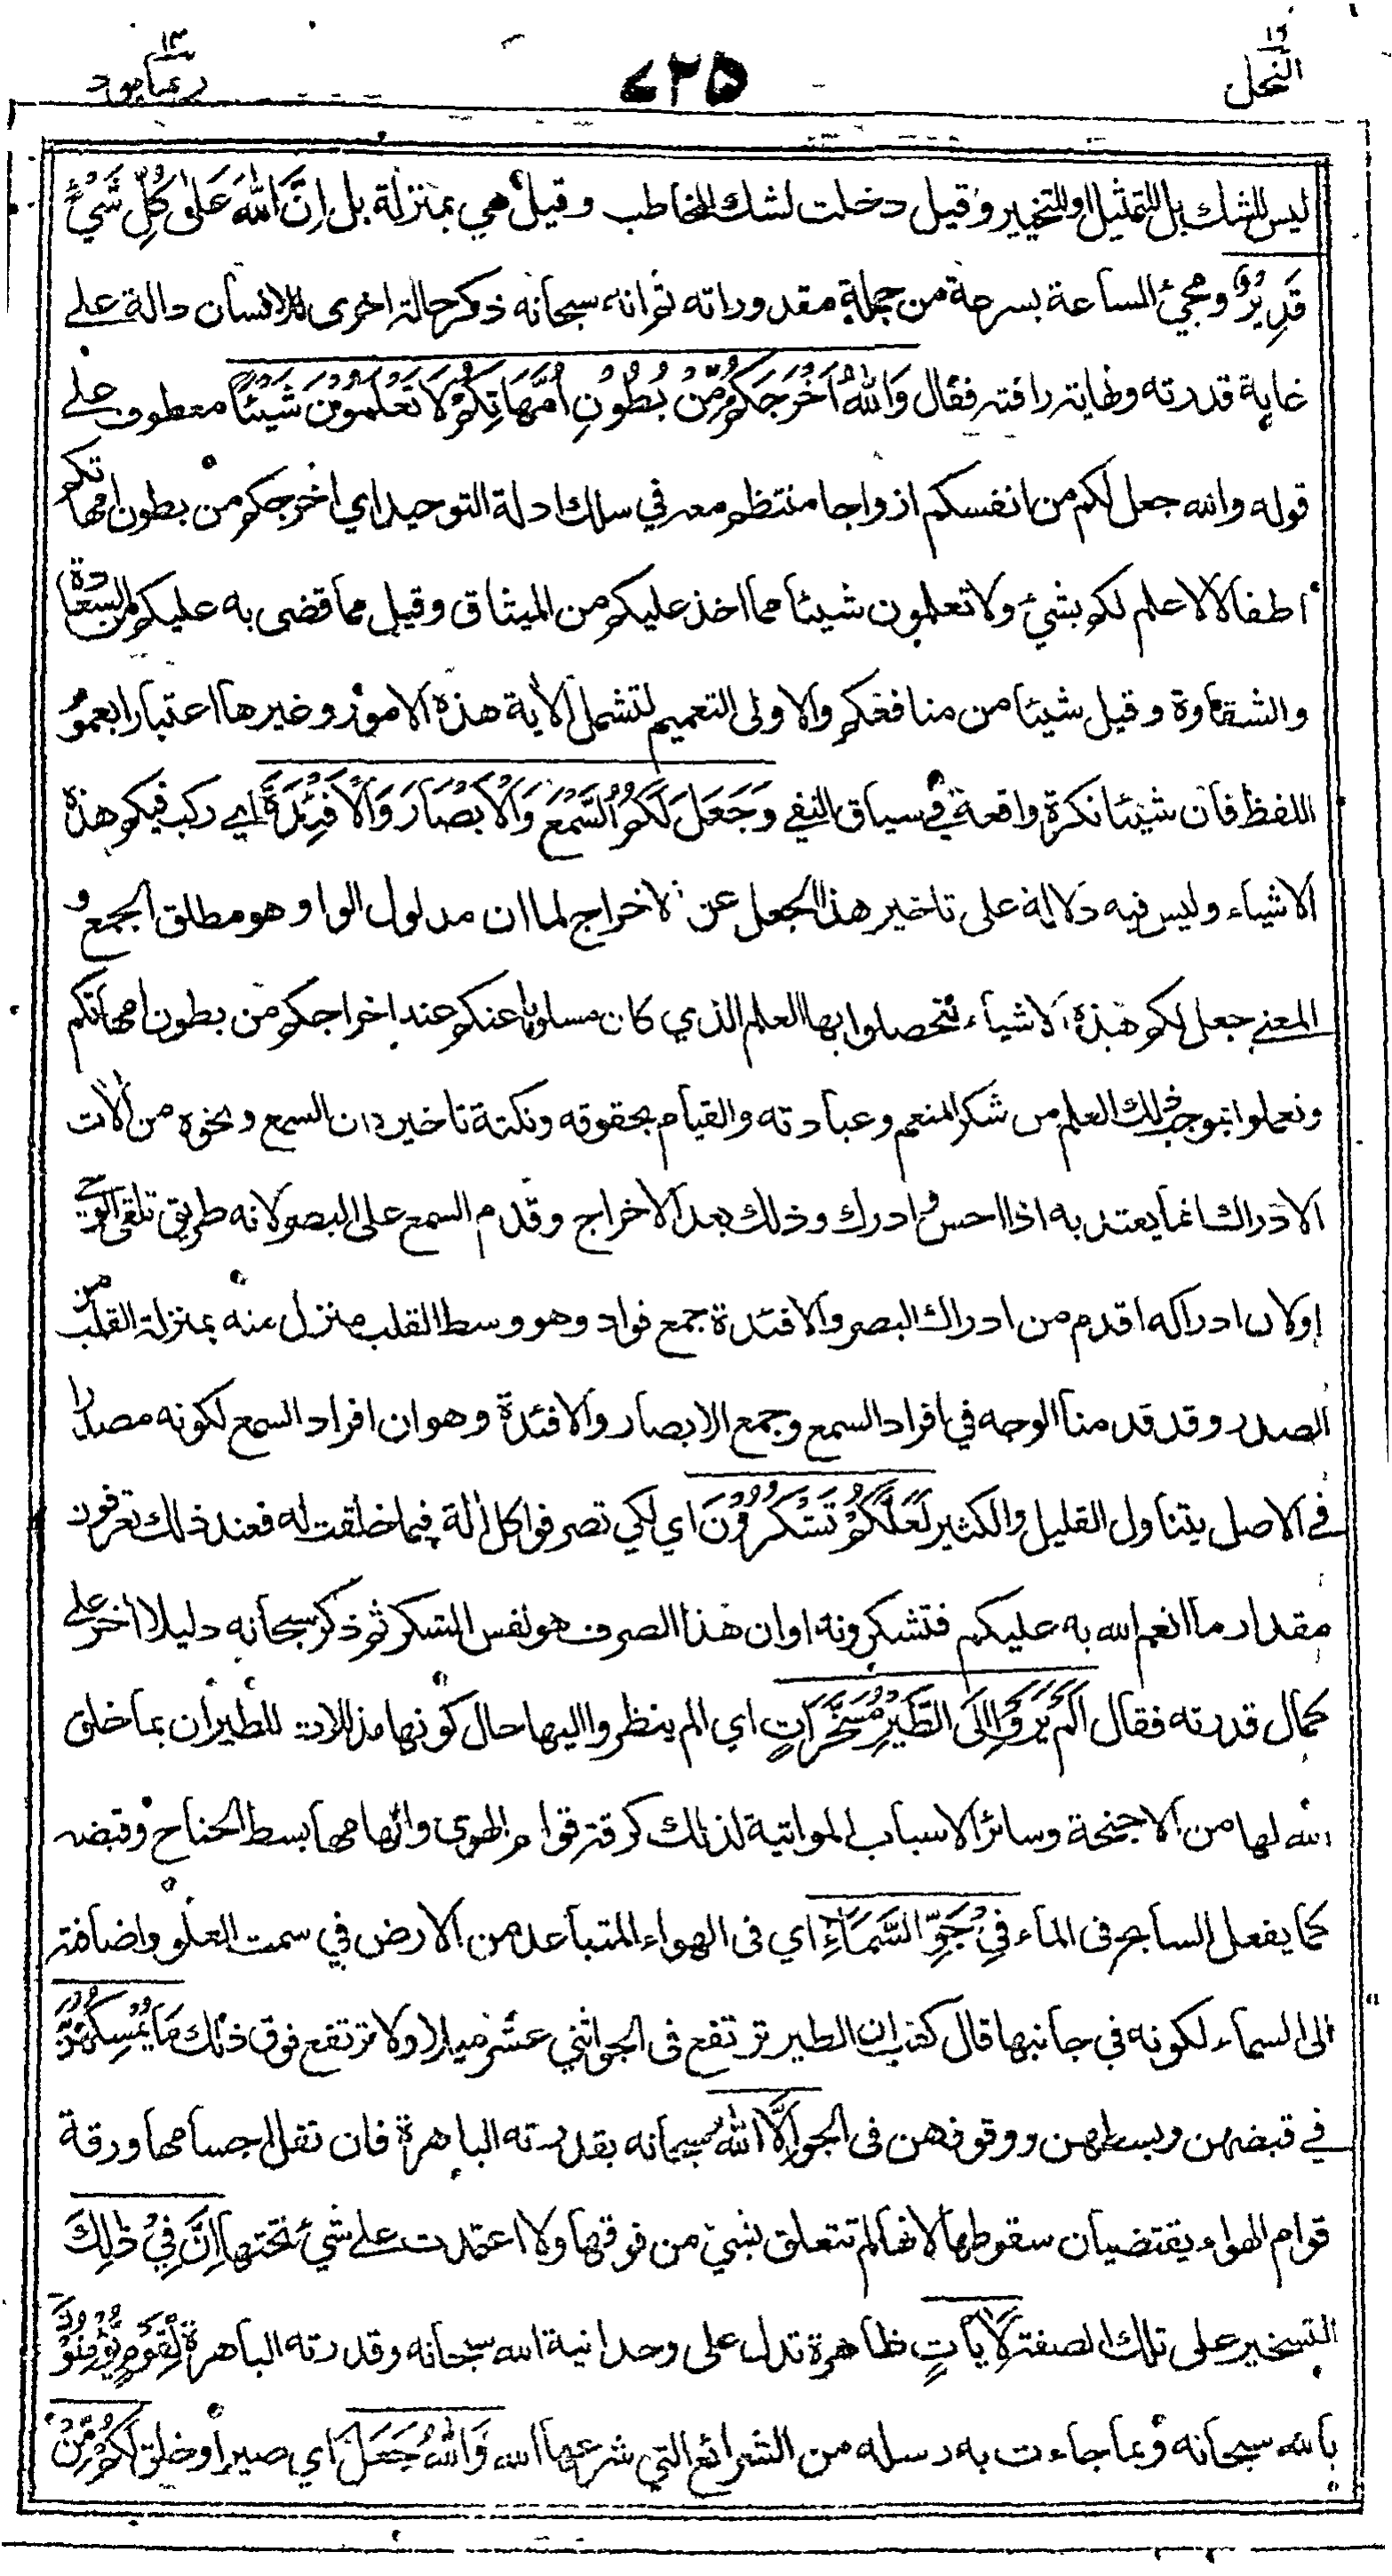 النحل ١٦
٧٢٥
ربما ١٤
ليس للشك بل للتمثيل او للتخيير وقيل دخلت لشك المخاطب وقيل هي بمنزلة بل اِنَّ اللّٰهَ عَلٰى كُلِّ شَيْءٍ
قَدِيْرٌ ومجيء الساعة بسرعة من جملة مقدوراته ثم انه سبحانه ذكر حالة اخرى للانسان دالة على
غاية قدرته ونهاية رافته فقال وَاللّٰهُ اَخْرَجَكُمْ مِّنْ بُطُوْنِ اُمَّهَاتِكُمْ لَا تَعْلَمُوْنَ شَيْئًا معطوف على
قوله والله جعل لكم من انفسكم ازواجا منتظم معه في سلك ادلة التوحيد اي اخرجكم من بطون امهاتكم
اطفالا لا علم لكم بشيء ولا تعلمون شيئا مما اخذ عليكم من الميثاق وقيل مما قضى به عليكم من السعادة
والشقاوة وقيل شيئا من منافعكم والاولى التعميم لتشمل الآية هذه الامور وغيرها اعتبارا بعموم
اللفظ فان شيئا نكرة واقعة في سياق النفي وَجَعَلَ لَكُمُ السَّمْعَ وَالْاَبْصَارَ وَالْاَفْئِدَةَ اي ركب فيكم هذه
الاشياء وليس فيه دلالة على تاخير هذا الجعل عن الاخراج لما ان مدلول الواو هو مطلق الجمع و
المعنى جعل لكم هذه الاشياء لتحصلوا بها العلم الذي كان مسلوبا عنكم عند اخراجكم من بطون امهاتكم
وتعملوا بموجب ذلك العلم من شكر المنعم وعبادته والقيام بحقوقه ونكتة تاخيره ان السمع ونحوه من آلات
الادراك انما يعتد به اذا احس وادرك وذلك بعد الاخراج وقدم السمع على البصر لانه طريق تلقي الوحي
اولان ادراكه اقدم من ادراك البصر والافئدة جمع فواد وهو وسط القلب منزل منه بمنزلة القلب من
الصدر وقد قدمنا الوجه في افراد السمع وجمع الابصار والافئدة وهو ان افراد السمع لكونه مصدرا
في الاصل يتناول القليل والكثير لَعَلَّكُمْ تَشْكُرُوْنَ اي لكي تصرفوا كل آلة فيما خلقت له فعند ذلك تعرفون
مقدار ما انعم الله به عليكم فتشكرونه اوان هذا الصرف هو نفس الشكر ثم ذكر سبحانه دليلا آخر على
كمال قدرته فقال اَلَمْ يَرَوْا اِلَى الطَّيْرِ مُسَخَّرَاتٍ اي الم ينظروا اليها حال كونها مذللات للطيران بما خلق
الله لها من الاجنحة وسائر الاسباب المواتية لذلك كرقة قوام الهوى والهامها بسط الجناح وقبضه
كما يفعل السابح في الماء فِيْ جَوِّ السَّمَاءِ اي في الهواء المتباعد من الارض في سمت العلو واضافته
الى السماء لكونه في جانبها قال كعب ان الطير ترتفع في الجو اثني عشر ميلا ولا ترتفع فوق ذلك مَا يُمْسِكُهُنَّ
في قبضهن وبسطهن ووقوفهن في الجو اِلَّا اللّٰهُ سبحانه بقدرته الباهرة فان ثقل اجسامها ورقة
قوام الهواء يقتضيان سقوطها لانها لم تتعلق بشيء من فوقها ولا اعتمدت على شيء تحتها اِنَّ فِيْ ذٰلِكَ
التسخير على تلك الصفة لَاٰيَاتٍ ظاهرة تدل على وحدانية الله سبحانه وقدرته الباهرة لِّقَوْمٍ يُّؤْمِنُوْنَ
بالله سبحانه وبما جاءت به رسله من الشرائع التي شرعها الله وَاللّٰهُ جَعَلَ اي صير او خلق لَكُمْ مِّنْ